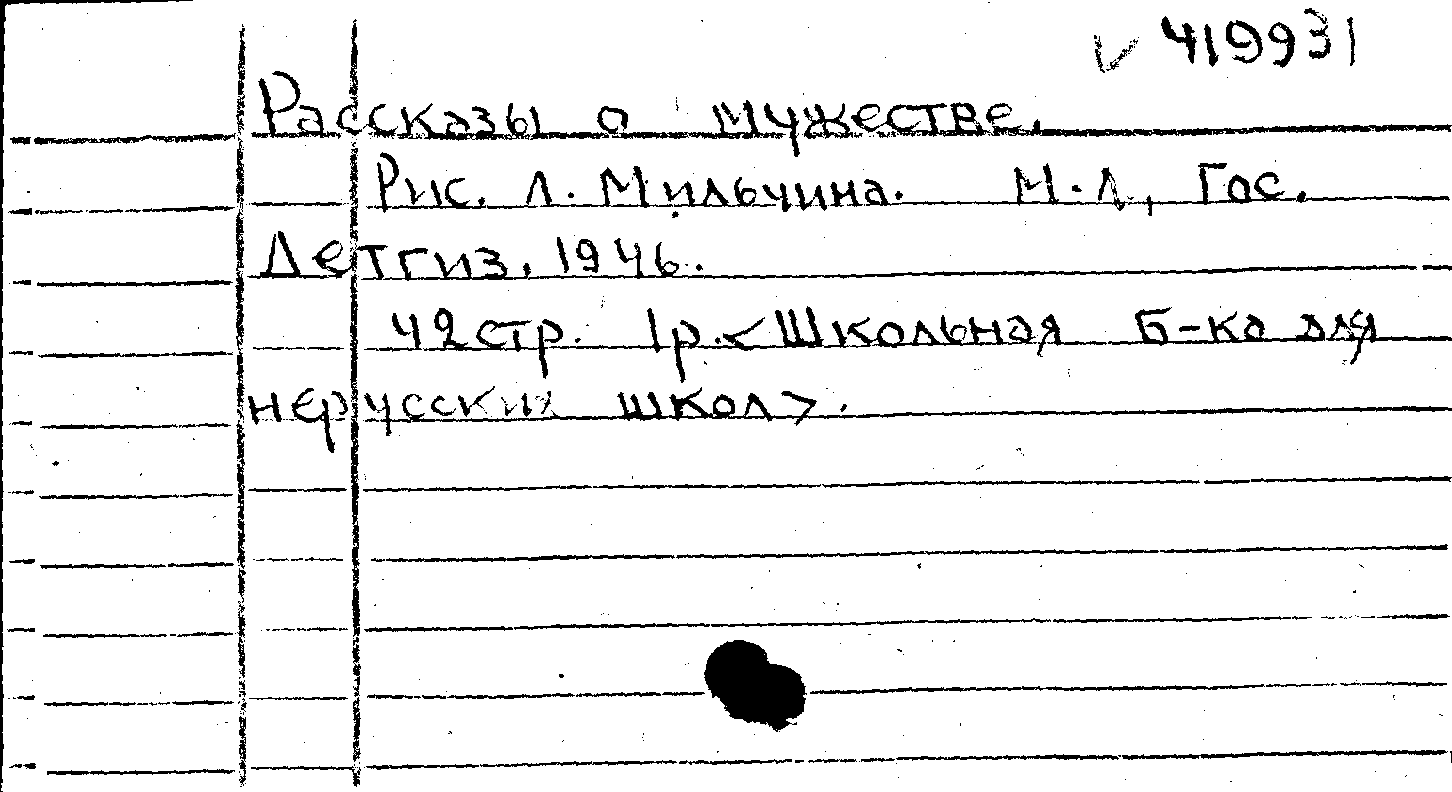 ✓ 419931
Рассказы о мужестве.
Рис. Л. Мильчина. М-Л, Гос.
Детгиз, 1946.
42стр. 1р. <Школьная Б-ка для
нерусских школ>.